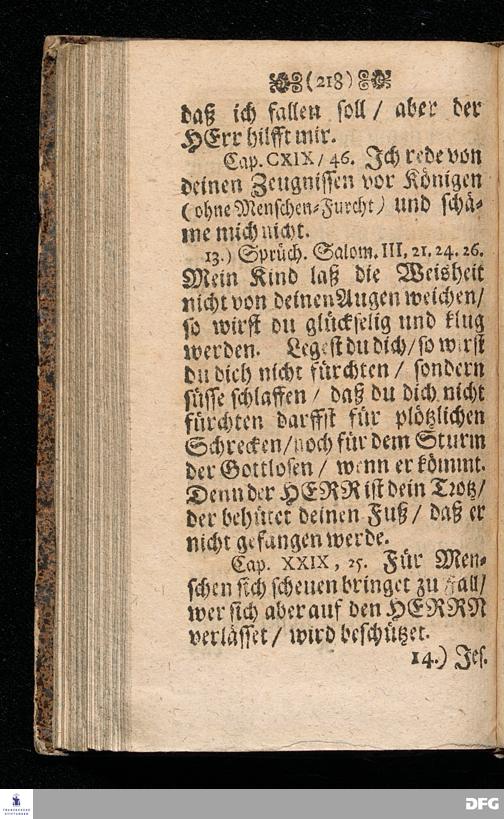 (218)
daß ich fallen soll / aber der
HErr hilfft mir.
Cap. CXIX / 46. Ich rede von
deinen Zeugnissen vor Königen
(ohne Menschen-Furcht) und schä-
me mich nicht.
13.) Sprüch. Salom. III, 21. 24. 26.
Mein Kind laß die Weisheit
nicht von deinen Augen weichen /
so wirst du glückselig und klug
werden. Legest du dich / so wirst
du dich nicht fürchten / sondern
süsse schlaffen / daß du dich nicht
fürchten darffst für plötzlichen
Schrecken / noch für dem Sturm
der Gottlosen / wenn er kömmt.
Denn der HERR ist dein Trotz /
der behütet deinen Fuß / daß er
nicht gefangen werde.
Cap. XXIX, 25. Für Men-
schen sich scheuen bringet zu Fall /
wer sich aber auf den HERRN
verlässet / wird beschützet.
14.) Jes.
FRANCKESCHE STIFTUNGEN
DFG